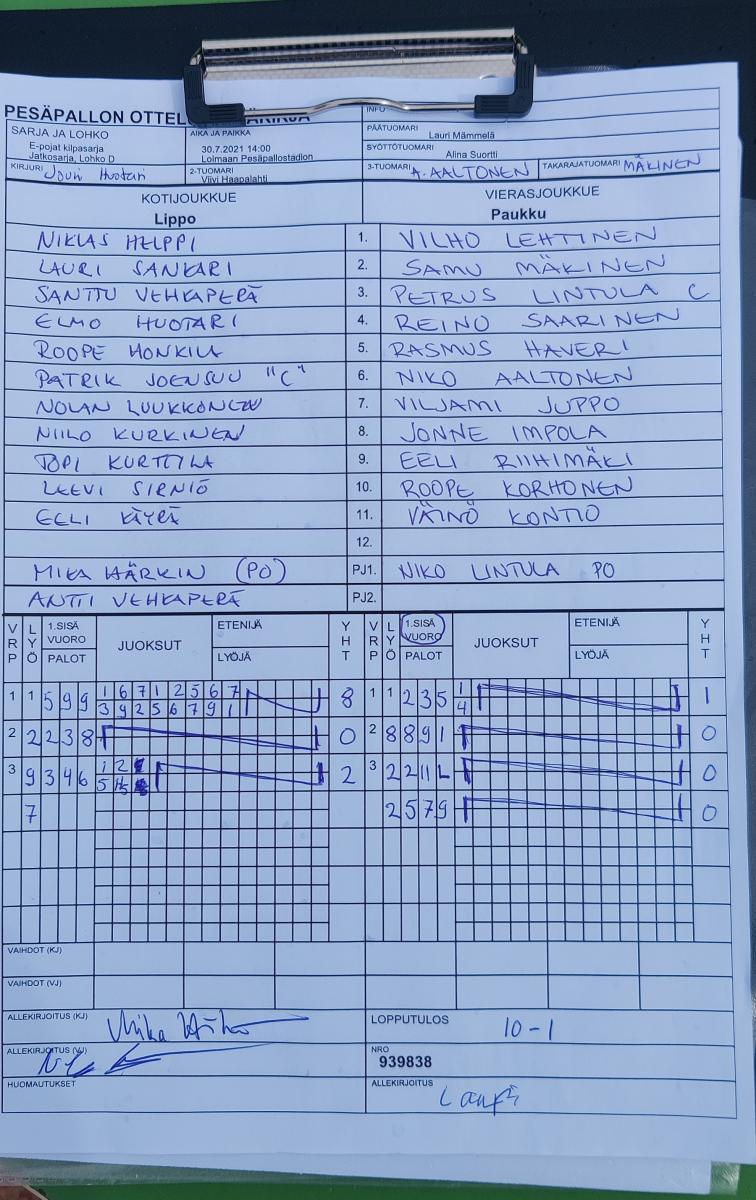 PESÄPALLON
INFO
SARJA JA LOHKO
E-pojat kilpasarja
Jatkosarja, Lohko D
AIKA JA PAIKKA
30.7.2021 14:00
Loimaan Pesäpallostadion
PÄÄTUOMARI Lauri Mämmelä
SYÖTTÖTUOMARI Alina Suortti
KIRJURI Jouni Huotari
2-TUOMARI Viivi Haapalahti
3-TUOMARI A. AALTONEN
TAKARAJATUOMARI MÄKINEN
KOTIJOUKKUE
Lippo
VIERASJOUKKUE
Paukku
NIKLAS HELPPI 1. VILHO LEHTINEN
LAURI SANKARI 2. SAMU MÄKINEN
SANTTU VEHKAPERÄ 3. PETRUS LINTULA C
ELMO HUOTARI 4. REINO SAARINEN
ROOPE HONKILA 5. RASMUS HAVERI
PATRIK JOENSUU "C" 6. NIKO AALTONEN
NOLAN LUUKKONEN 7. VILJAMI JUPPO
NIILO KURKINEN 8. JONNE IMPOLA
TOPI KURTTILA 9. EELI RIIHIMÄKI
LEEVI SIRNIÖ 10. ROOPE KORHONEN
EELI KÄYRÄ 11. VÄINÖ KONTIO
12.
MIKA HÄRKIN (PO) PJ1. NIKO LINTULA PO
ANTTI VEHKAPERÄ PJ2.
VRP LYÖ 1.SISÄ VUORO PALOT JUOKSUT ETENIJÄ LYÖJÄ YHT VRP LYÖ 1.SISÄ VUORO PALOT JUOKSUT ETENIJÄ LYÖJÄ YHT
1 1 5 9 9 1 6 7 1 2 5 6 7 8 1 1 2 3 5 1 1
3 9 2 5 6 7 9 1 4
2 2 2 3 8 0 2 8 8 9 1 0
3 9 3 4 6 1 2 2 3 2 2 11 L 0
5
7 2 5 7 9 0
VAIHDOT (KJ)
VAIHDOT (VJ)
ALLEKIRJOITUS (KJ) LOPPUTULOS 10-1
ALLEKIRJOITUS (VJ) NRO
939838
HUOMAUTUKSET ALLEKIRJOITUS